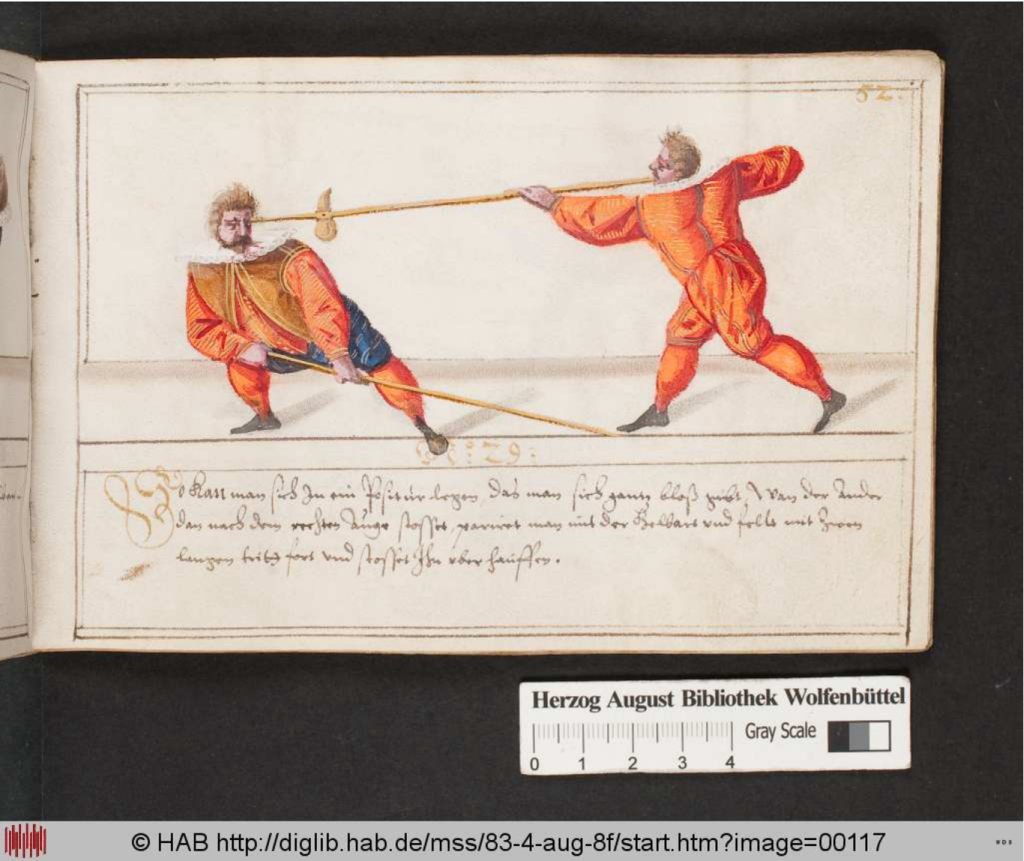 52.
N: 29:
So Kan man sich In ein Positur legen, das man sich gantz bloß gibt, Wan der Ander
dan nach dem rechten Auge stosset, pariret man mit der Helbart vnd felt mit Zwen
langen trit fort vnd stosset Ihn vber hauffen.
Herzog August Bibliothek Wolfenbüttel
Gray Scale
0 1 2 3 4
© HAB http://diglib.hab.de/mss/83-4-aug-8f/start.htm?image=00117